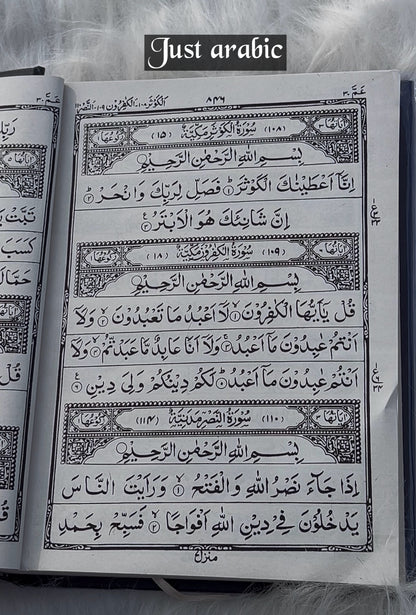 Just arabic
عَمَّ ٣٠
٨٤٦
اَلْكَوْثَر ١٠٨ اَلْكٰفِرُوْن ١٠٩ اَلنَّصْر ١١٠
اٰيَاتُهَا ٣ (١٠٨) سُوْرَةُ الْكَوْثَرِ مَكِّيَّةٌ (١٥) رُكُوْعُهَا ١
بِسْمِ اللهِ الرَّحْمٰنِ الرَّحِيْمِ
اِنَّآ اَعْطَيْنٰكَ الْكَوْثَرَ ۱ فَصَلِّ لِرَبِّكَ وَانْحَرْ ۲
اِنَّ شَانِئَكَ هُوَ الْاَبْتَرُ ۳
اٰيَاتُهَا ٦ (١٠٩) سُوْرَةُ الْكٰفِرُوْنَ مَكِّيَّةٌ (١٨) رُكُوْعُهَا ١
بِسْمِ اللهِ الرَّحْمٰنِ الرَّحِيْمِ
قُلْ يٰۤاَيُّهَا الْكٰفِرُوْنَ ۱ لَاۤ اَعْبُدُ مَا تَعْبُدُوْنَ ۲ وَلَاۤ
اَنْتُمْ عٰبِدُوْنَ مَاۤ اَعْبُدُ ۳ وَلَاۤ اَنَا عَابِدٌ مَّا عَبَدْتُّمْ ۴ وَلَاۤ
اَنْتُمْ عٰبِدُوْنَ مَاۤ اَعْبُدُ ۵ لَكُمْ دِيْنُكُمْ وَلِيَ دِيْنِ ۶
اٰيَاتُهَا ٣ (١١٠) سُوْرَةُ النَّصْرِ مَدَنِيَّةٌ (١١٤) رُكُوْعُهَا ١
بِسْمِ اللهِ الرَّحْمٰنِ الرَّحِيْمِ
اِذَا جَآءَ نَصْرُ اللهِ وَالْفَتْحُ ۱ وَرَاَيْتَ النَّاسَ
يَدْخُلُوْنَ فِيْ دِيْنِ اللهِ اَفْوَاجًا ۲ فَسَبِّحْ بِحَمْدِ
منزل
عَمَّ ٣٠
رَبِّكَ
تَبَّتْ
كَسَبَ
حَمَّالَةَ
قُلْ